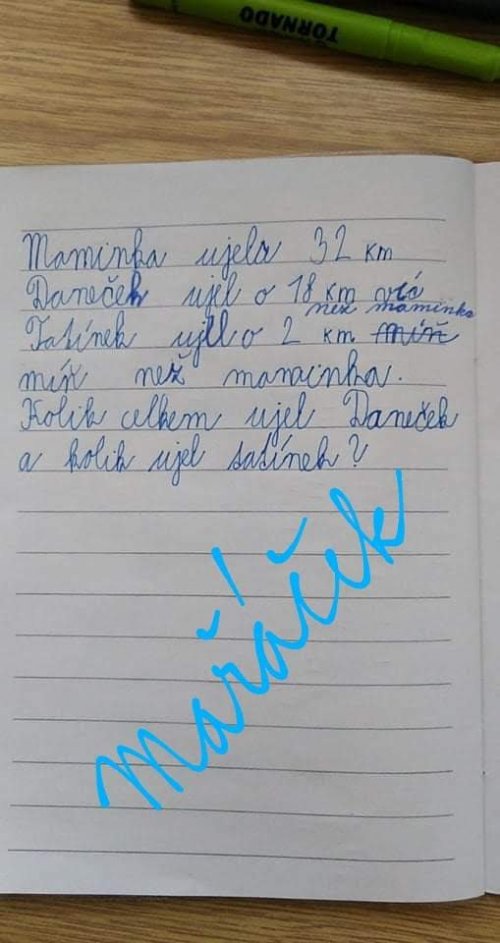 TORNADO
Maminka ujela 32 km
Daneček ujel o 18 km víc
než maminka
Tatínek ujel o 2 km míň
míň než maminka.
Kolik celkem ujel Daneček
a kolik ujel tatínek?
mařáček